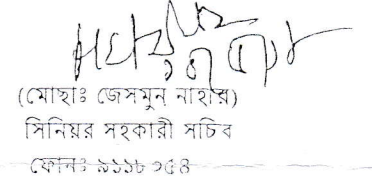 (মোছাঃ জেসমুন নাহার)
সিনিয়র সহকারী সচিব
ফোনঃ ৯১১৮১৫৪